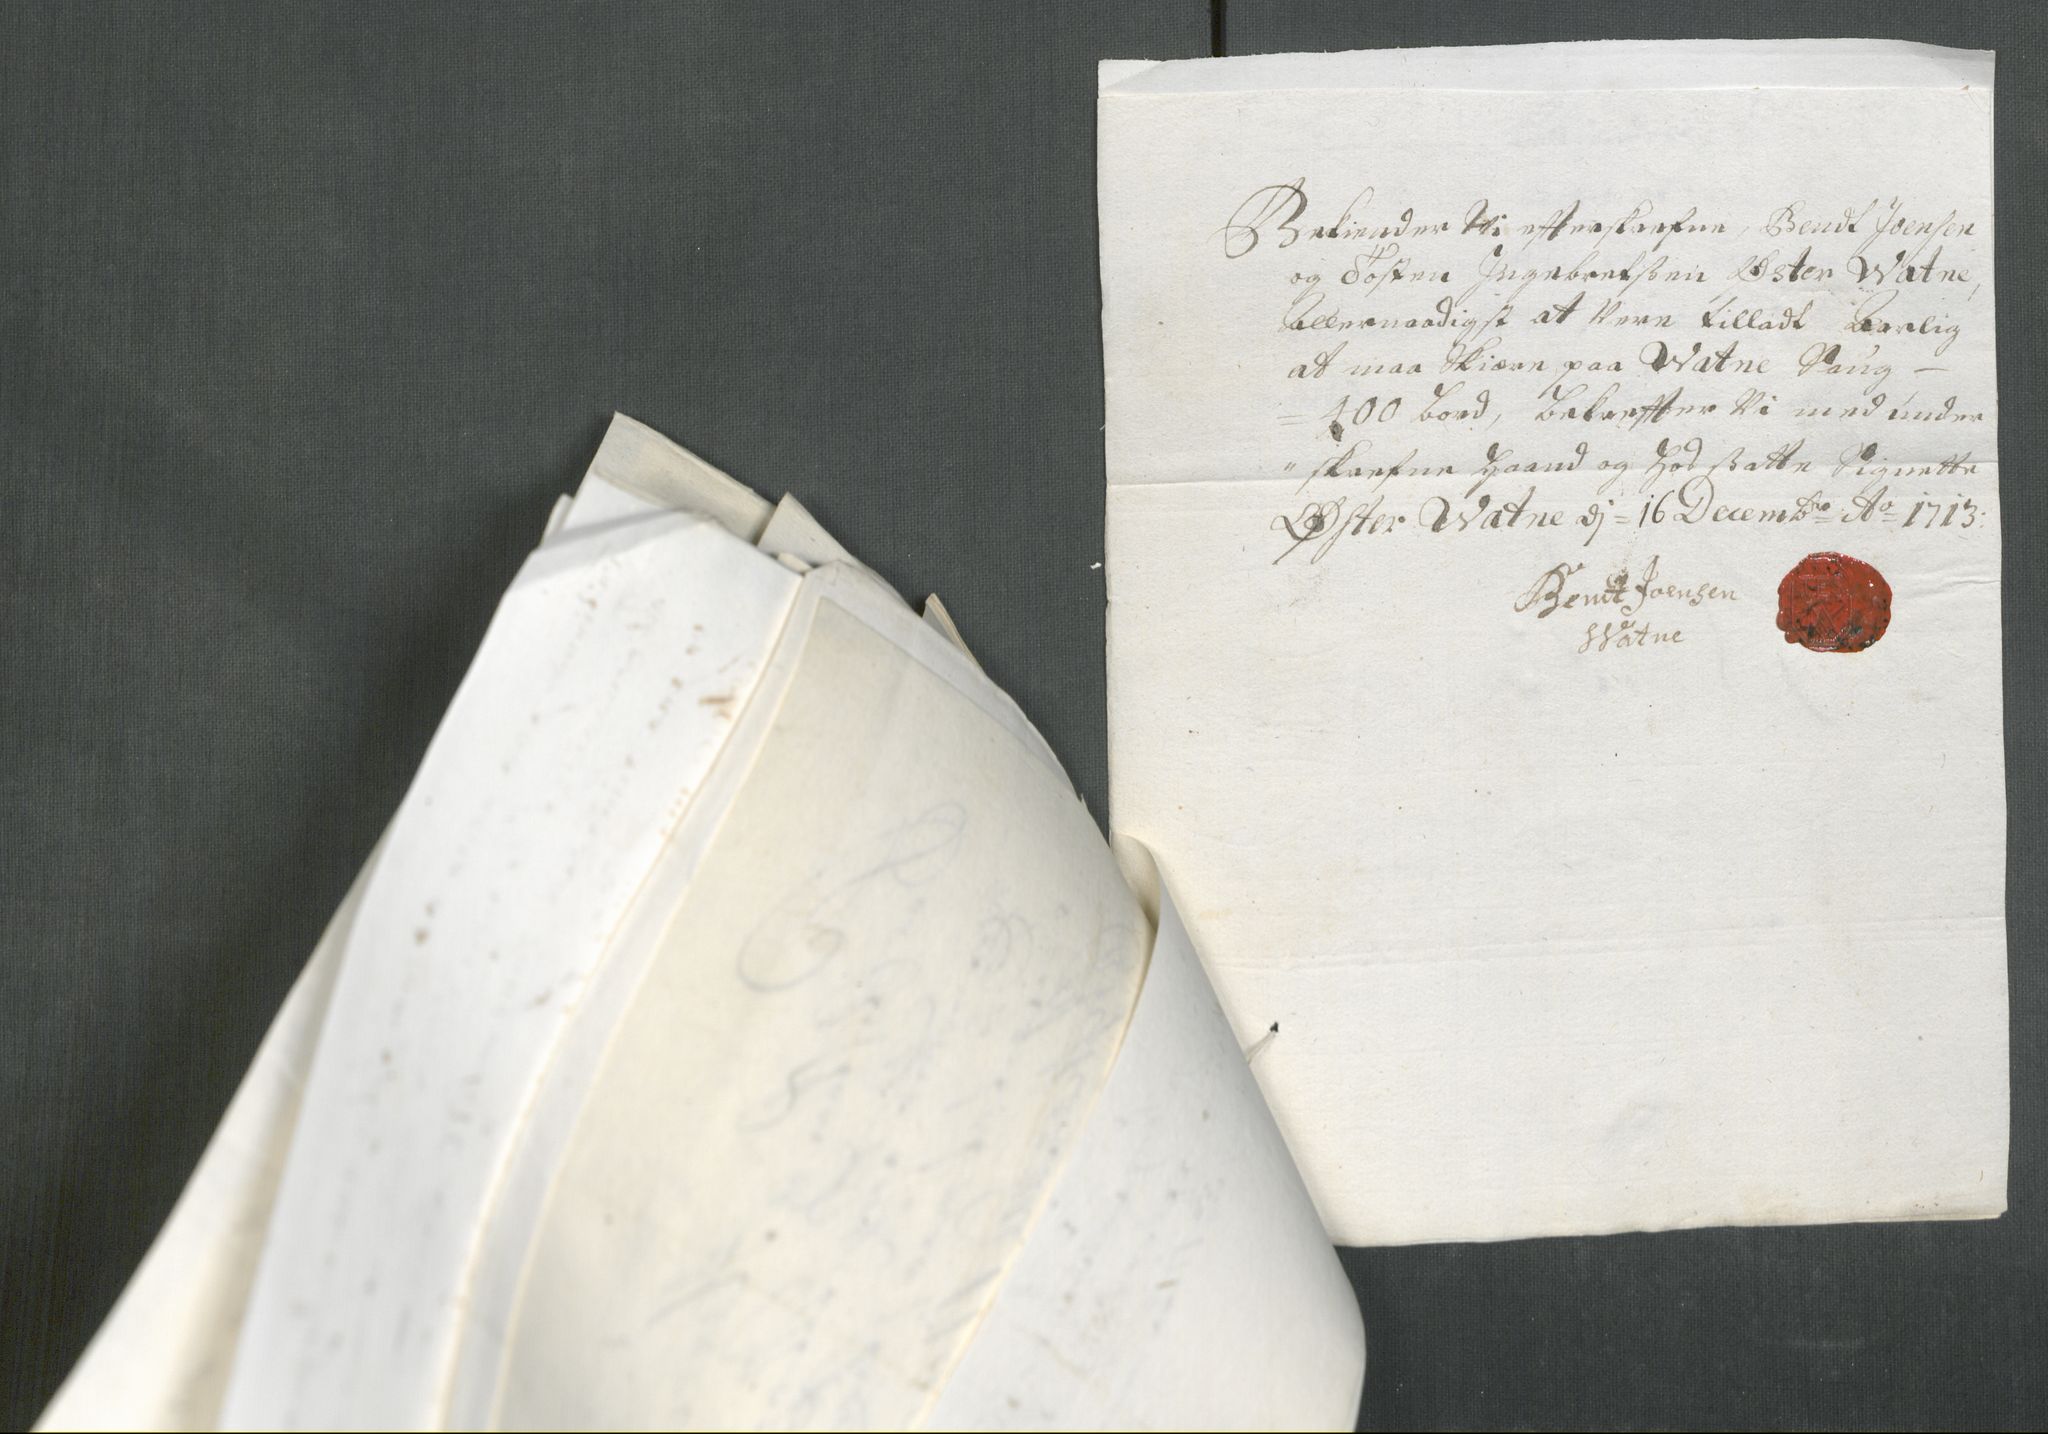 Bekiender Vi efterskrefne, Bendt Joensen
og Tosten Ingebretsen Øster Watne,
allernaadigst at Vere tilladt Aarlig
at maa Skiære paa Watne Saug —
= 400 bord, bekrefter Vi med under
" skrefne Haand og hos satte Signette
Øster Watne dj = 16 Decembr: Ao = 1713:
Bendt Joensen
Watne